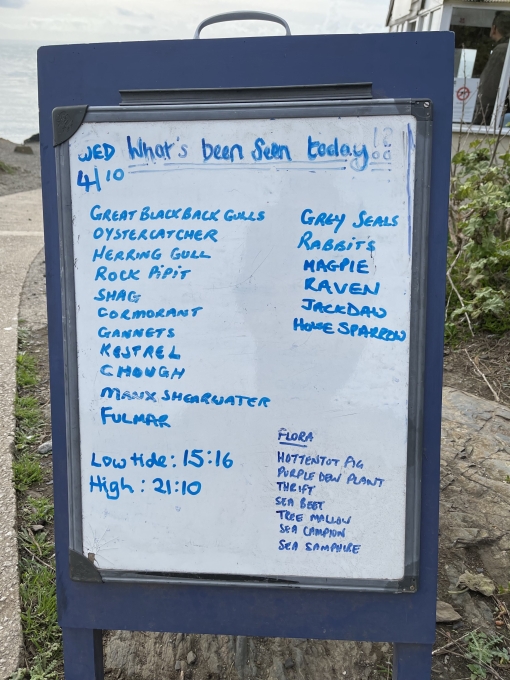 WED What's been seen today!?
4/10
GREAT BLACK BACK GULLS
OYSTERCATCHER
HERRING GULL
ROCK PIPIT
SHAG
CORMORANT
GANNETS
KESTREL
CHOUGH
MANX SHEARWATER
FULMAR
Low tide: 15:16
High: 21:10
GREY SEALS
RABBITS
MAGPIE
RAVEN
JACKDAW
HOUSE SPARROW
FLORA
HOTTENTOT FIG
PURPLE DEW PLANT
THRIFT
SEA BEET
TREE MALLOW
SEA CAMPION
SEA SAMPHIRE